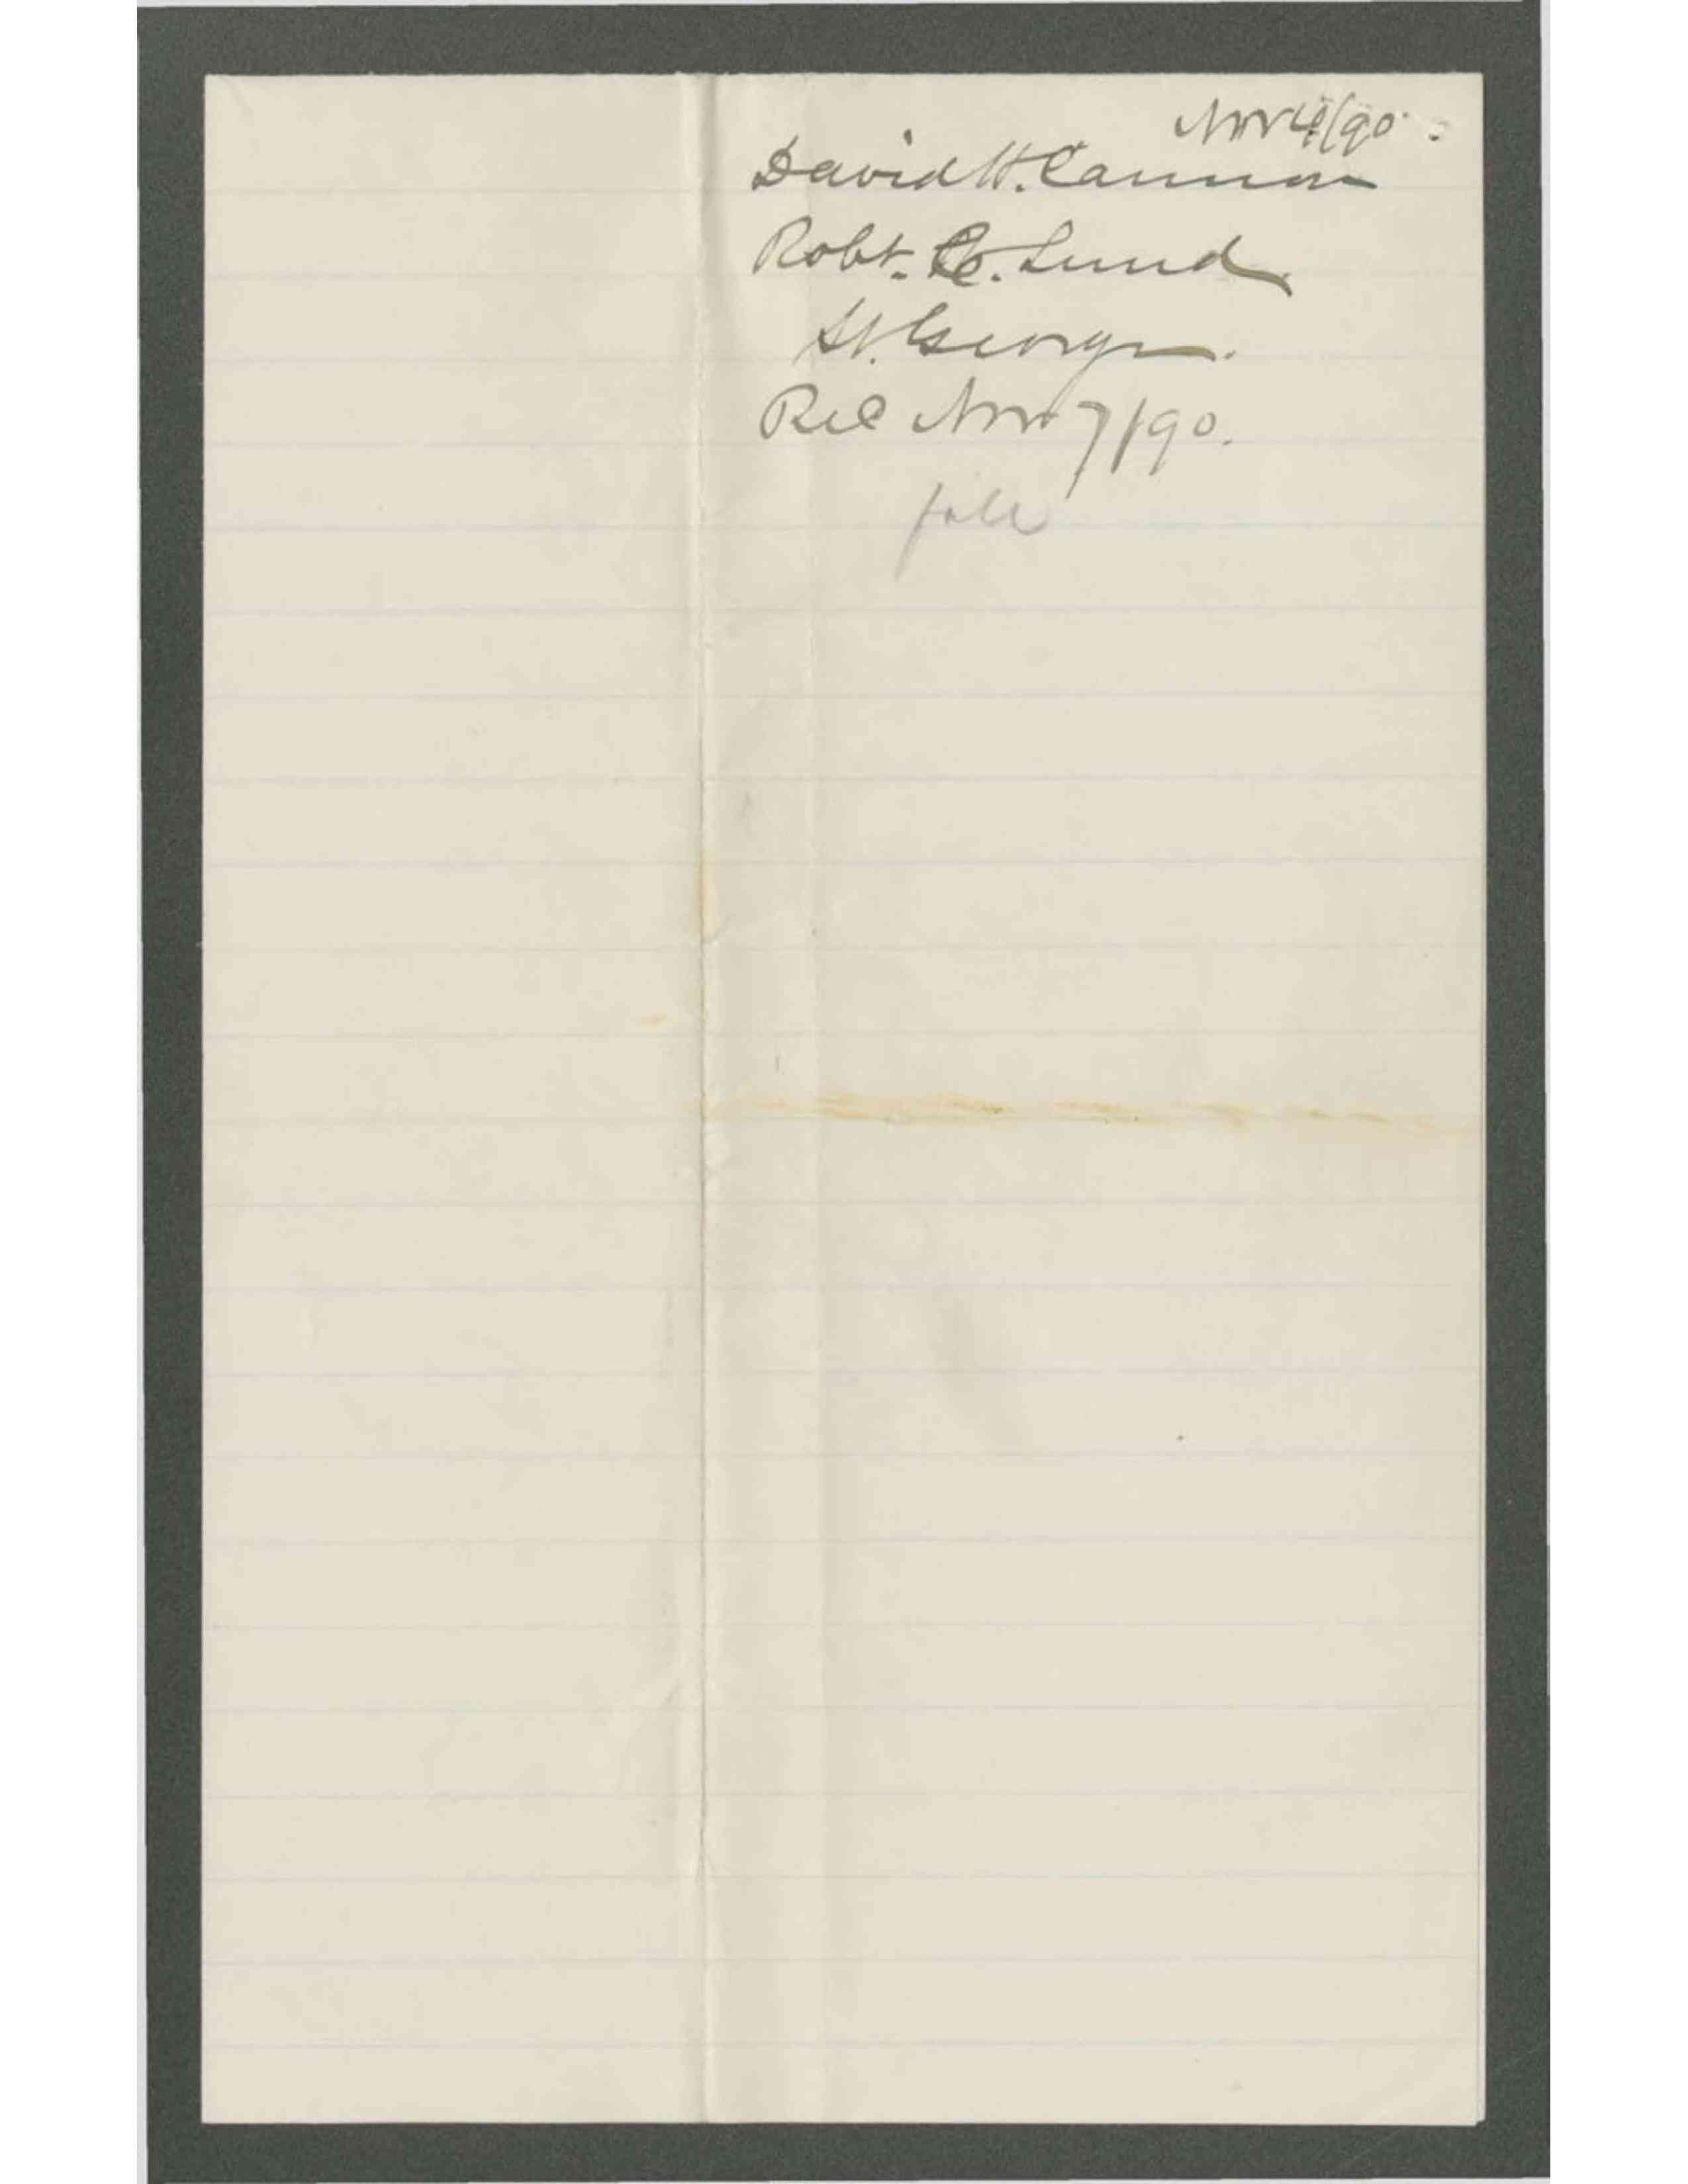 Nov 4/90.
David H. Cannon
Robt. C. Lund.
St. George.
Rec Nov 7/90.